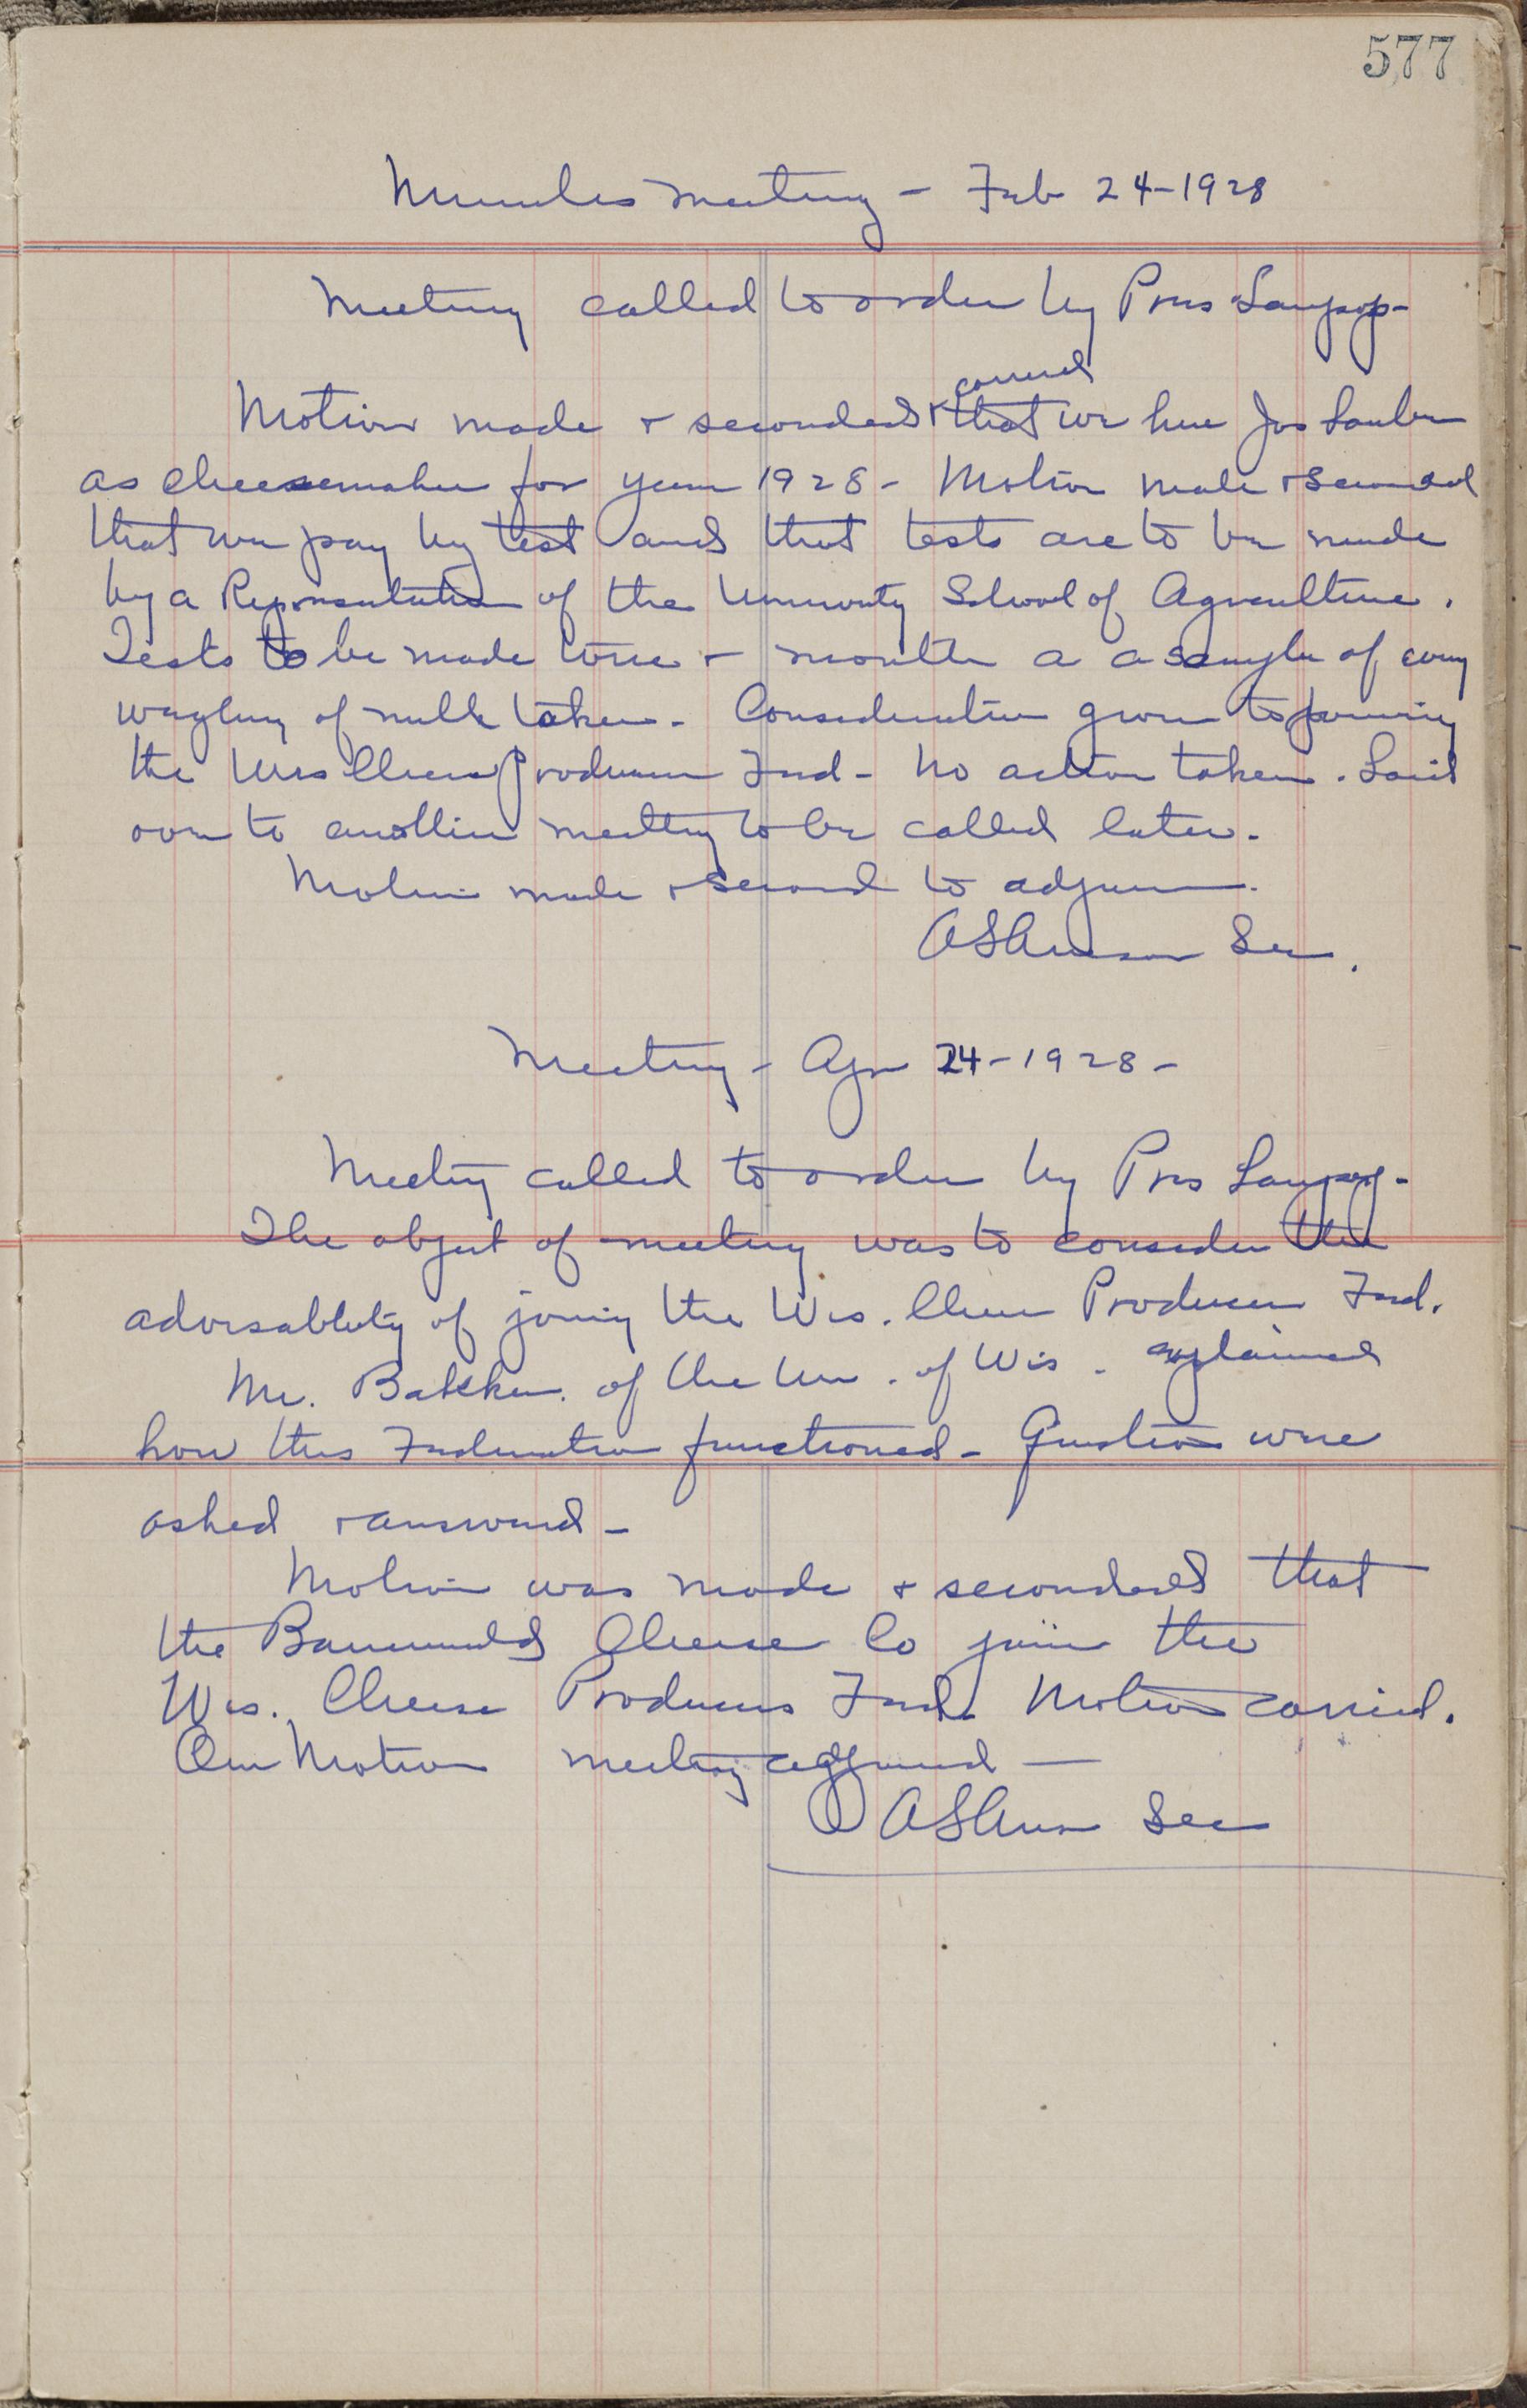 577
Minutes meeting - Feb 24-1928
Meeting called to order by Pres
Motion made & seconded & carried that we hire Jos
as cheesemaker for year 1928 - Motion made & second
that we pay by test and that tests are to be made
by a Representative of the University School of Agriculture.
Tests to be made a month a a sample of every
of milk taken - Consideration given to joining
the Wis Cheese Producers Fed - No action taken. Laid
over to another meeting to be called later -
Motion made & second to adjourn.
Sec.
Meeting - Apr 24-1928 -
Meeting called to order by Pres
The object of meeting was to consider the
advisability of joining the Wis. Cheese Producers Fed.
Mr. Bakken of the Un. of Wis. explained
how this Federation functioned - Questions were
asked & answered -
Motion was made & seconded that
the Cheese Co join the
Wis. Cheese Producers Fed. Motion carried.
On Motion meeting adjourned -
Sec